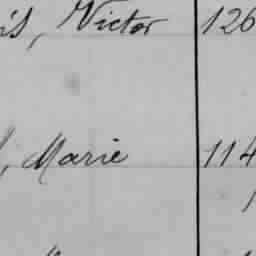 is, Victor 126
, Marie 114